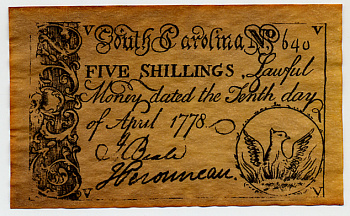 South Carolina No 640
FIVE SHILLINGS, Lawful
Money dated the Tenth day
of April 1778
J Beale